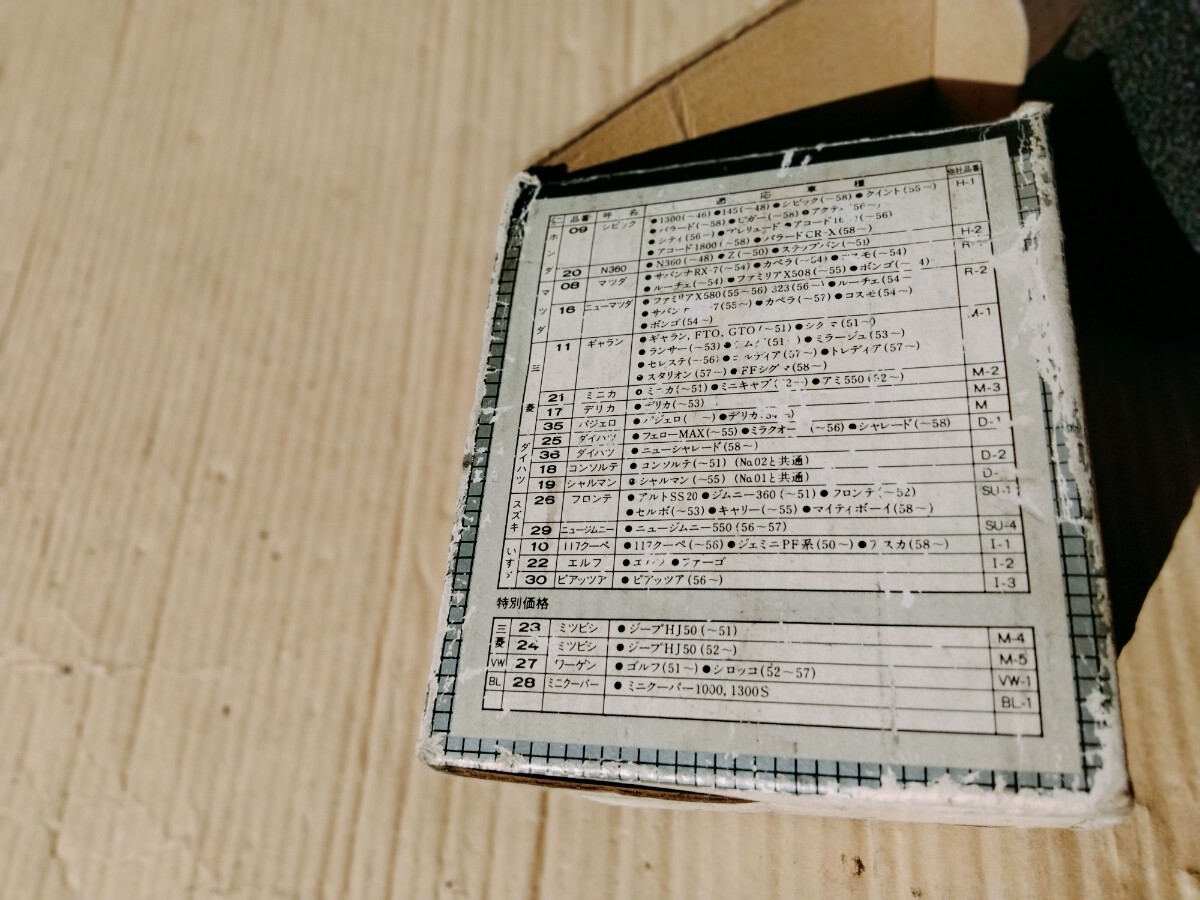 品番 呼名 適応車種 他社品番
ホンダ 09 シビック ●1300(〜46) ●145(〜48) ●シビック(〜58) ●クイント(55〜) H-1
●バラード(〜58) ●ビガー(〜58) ●アクティ 56〜)
●シティ(56〜) ●プレリュード ●アコード (〜56)
●アコード1800(〜58) ●バラードCR-X(58〜)
20 N360 ●N360(〜48) ●Z(〜50) ●ステップバン(〜51) H-2
マツダ 08 マツダ ●サバンナRX-7(〜54) ●カペラ(〜54) ●コスモ(〜54)
●ルーチェ(〜54) ●ファミリアX508(〜55) ●ボンゴ( 4)
16 ニューマツダ ●ファミリアX580(55〜56) 323(56〜) ●ルーチェ(54 R-2
●サバン 7(55〜) ●カペラ(〜57) ●コスモ(54〜)
●ボンゴ(54〜)
三菱 11 ギャラン ●ギャラン, FTO, GTO(〜51) ●シグマ(51〜) M-1
●ランサー(〜53) (51 ) ●ミラージュ(53〜)
●セレステ(〜56) ●コルディア(57〜) ●トレディア(57〜)
●スタリオン(57〜) ●FFシグマ(58〜)
21 ミニカ ●ミニカ(〜51) ●ミニキャブ( 2〜) ●アミ550(52〜) M-2
17 デリカ ●デリカ(〜53) M-3
35 パジェロ ●パジェロ( 〜) ●デリカ( 〜) M
ダイハツ 25 ダイハツ ●フェローMAX(〜55) ●ミラクオーレ (〜56) ●シャレード(〜58) D-1
36 ダイハツ ●ニューシャレード(58〜)
18 コンソルテ ●コンソルテ(〜51) (No.02と共通) D-2
19 シャルマン ●シャルマン(〜55) (No.01と共通) D-
スズキ 26 フロンテ ●アルトSS20 ●ジムニー360(〜51) ●フロンテ(〜52) SU-1
●セルボ(〜53) ●キャリー(〜55) ●マイティボーイ(58〜)
29 ニュージムニー ●ニュージムニー550(56〜57) SU-4
いすゞ 10 117クーペ ●117クーペ(〜56) ●ジェミニPF系(50〜) ●アスカ(58〜) I-1
22 エルフ ●エルフ ●ファーゴ I-2
30 ピアッツァ ●ピアッツァ(56〜) I-3
特別価格
三菱 23 ミツビシ ●ジープHJ50(〜51) M-4
24 ミツビシ ●ジープHJ50(52〜) M-5
VW 27 ワーゲン ●ゴルフ(51〜) ●シロッコ(52〜57) VW-1
BL 28 ミニクーパー ●ミニクーパー1000, 1300S BL-1